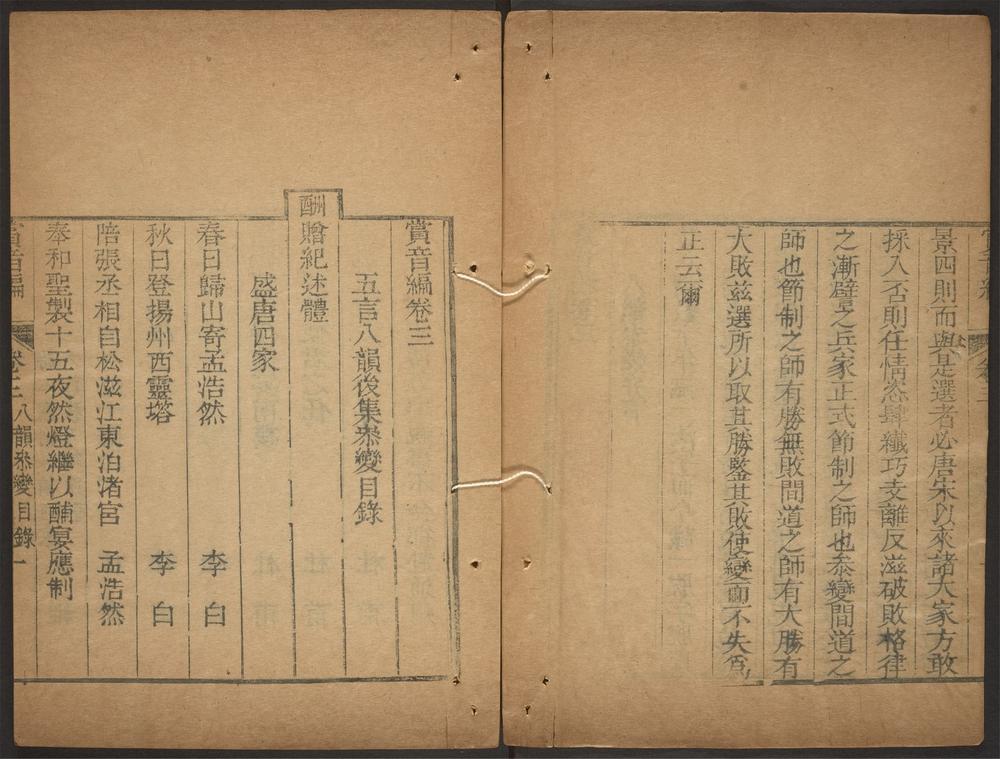 景四則而與是選者必唐宋以來諸大家方敢
採入否則任情恣肆纖巧支離反滋破敗格律
之漸譬之兵家正式節制之師也叅變間道之
師也節制之師有勝無敗間道之師有大勝有
大敗兹選所以取其勝鑒其敗使變而不失爲
正云爾
賞音編卷三
五言八韻後集叅變目錄
酬
贈紀述體
盛唐四家
春日歸山寄孟浩然 李白
秋日登揚州西靈塔 李白
陪張丞相自松滋江東泊渚宮 孟浩然
奉和聖製十五夜然燈繼以酺宴應制
賞音編 卷三 八韻叅變目錄 一